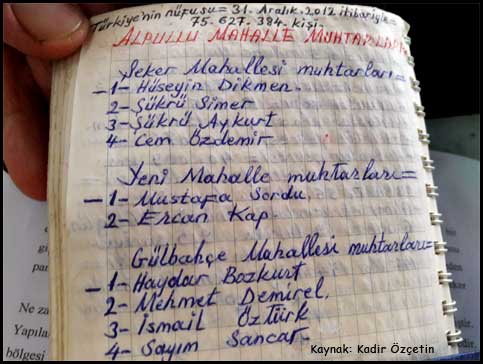 Türkiye'nin nüfusu = 31. Aralık. 2012 itibariyle =
75. 627. 384. kişi.
ALPULLU MAHALLE MUHTARLARI
Şeker Mahallesi muhtarları =
- 1- Hüseyin Dikmen.
2- Şükrü Simer
3- Şükrü Aykurt
4- Cem Özdemir
Yeni Mahalle muhtarları =
- 1- Mustafa Sordu
2- Ercan Kap.
Gülbahçe Mahallesi muhtarları =
- 1- Haydar Bozkurt
2- Mehmet Demirel.
3- İsmail Öztürk
4- Sayım Sancar.
Ne za
Yapıla
bölgesi
Kaynak: Kadir Özçetin